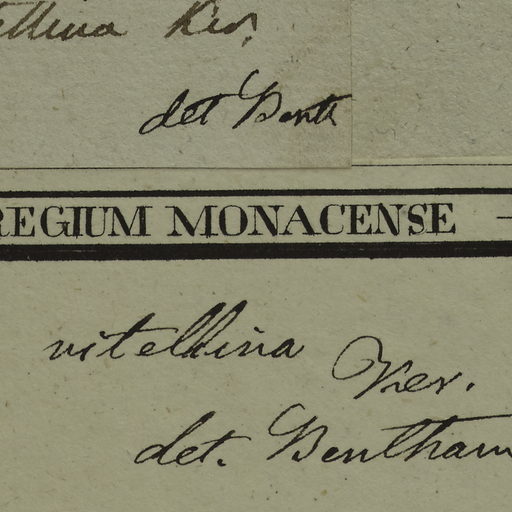 ellina Ker.
det Benth
REGIUM MONACENSE —
vitellina Ker.
det. Bentham